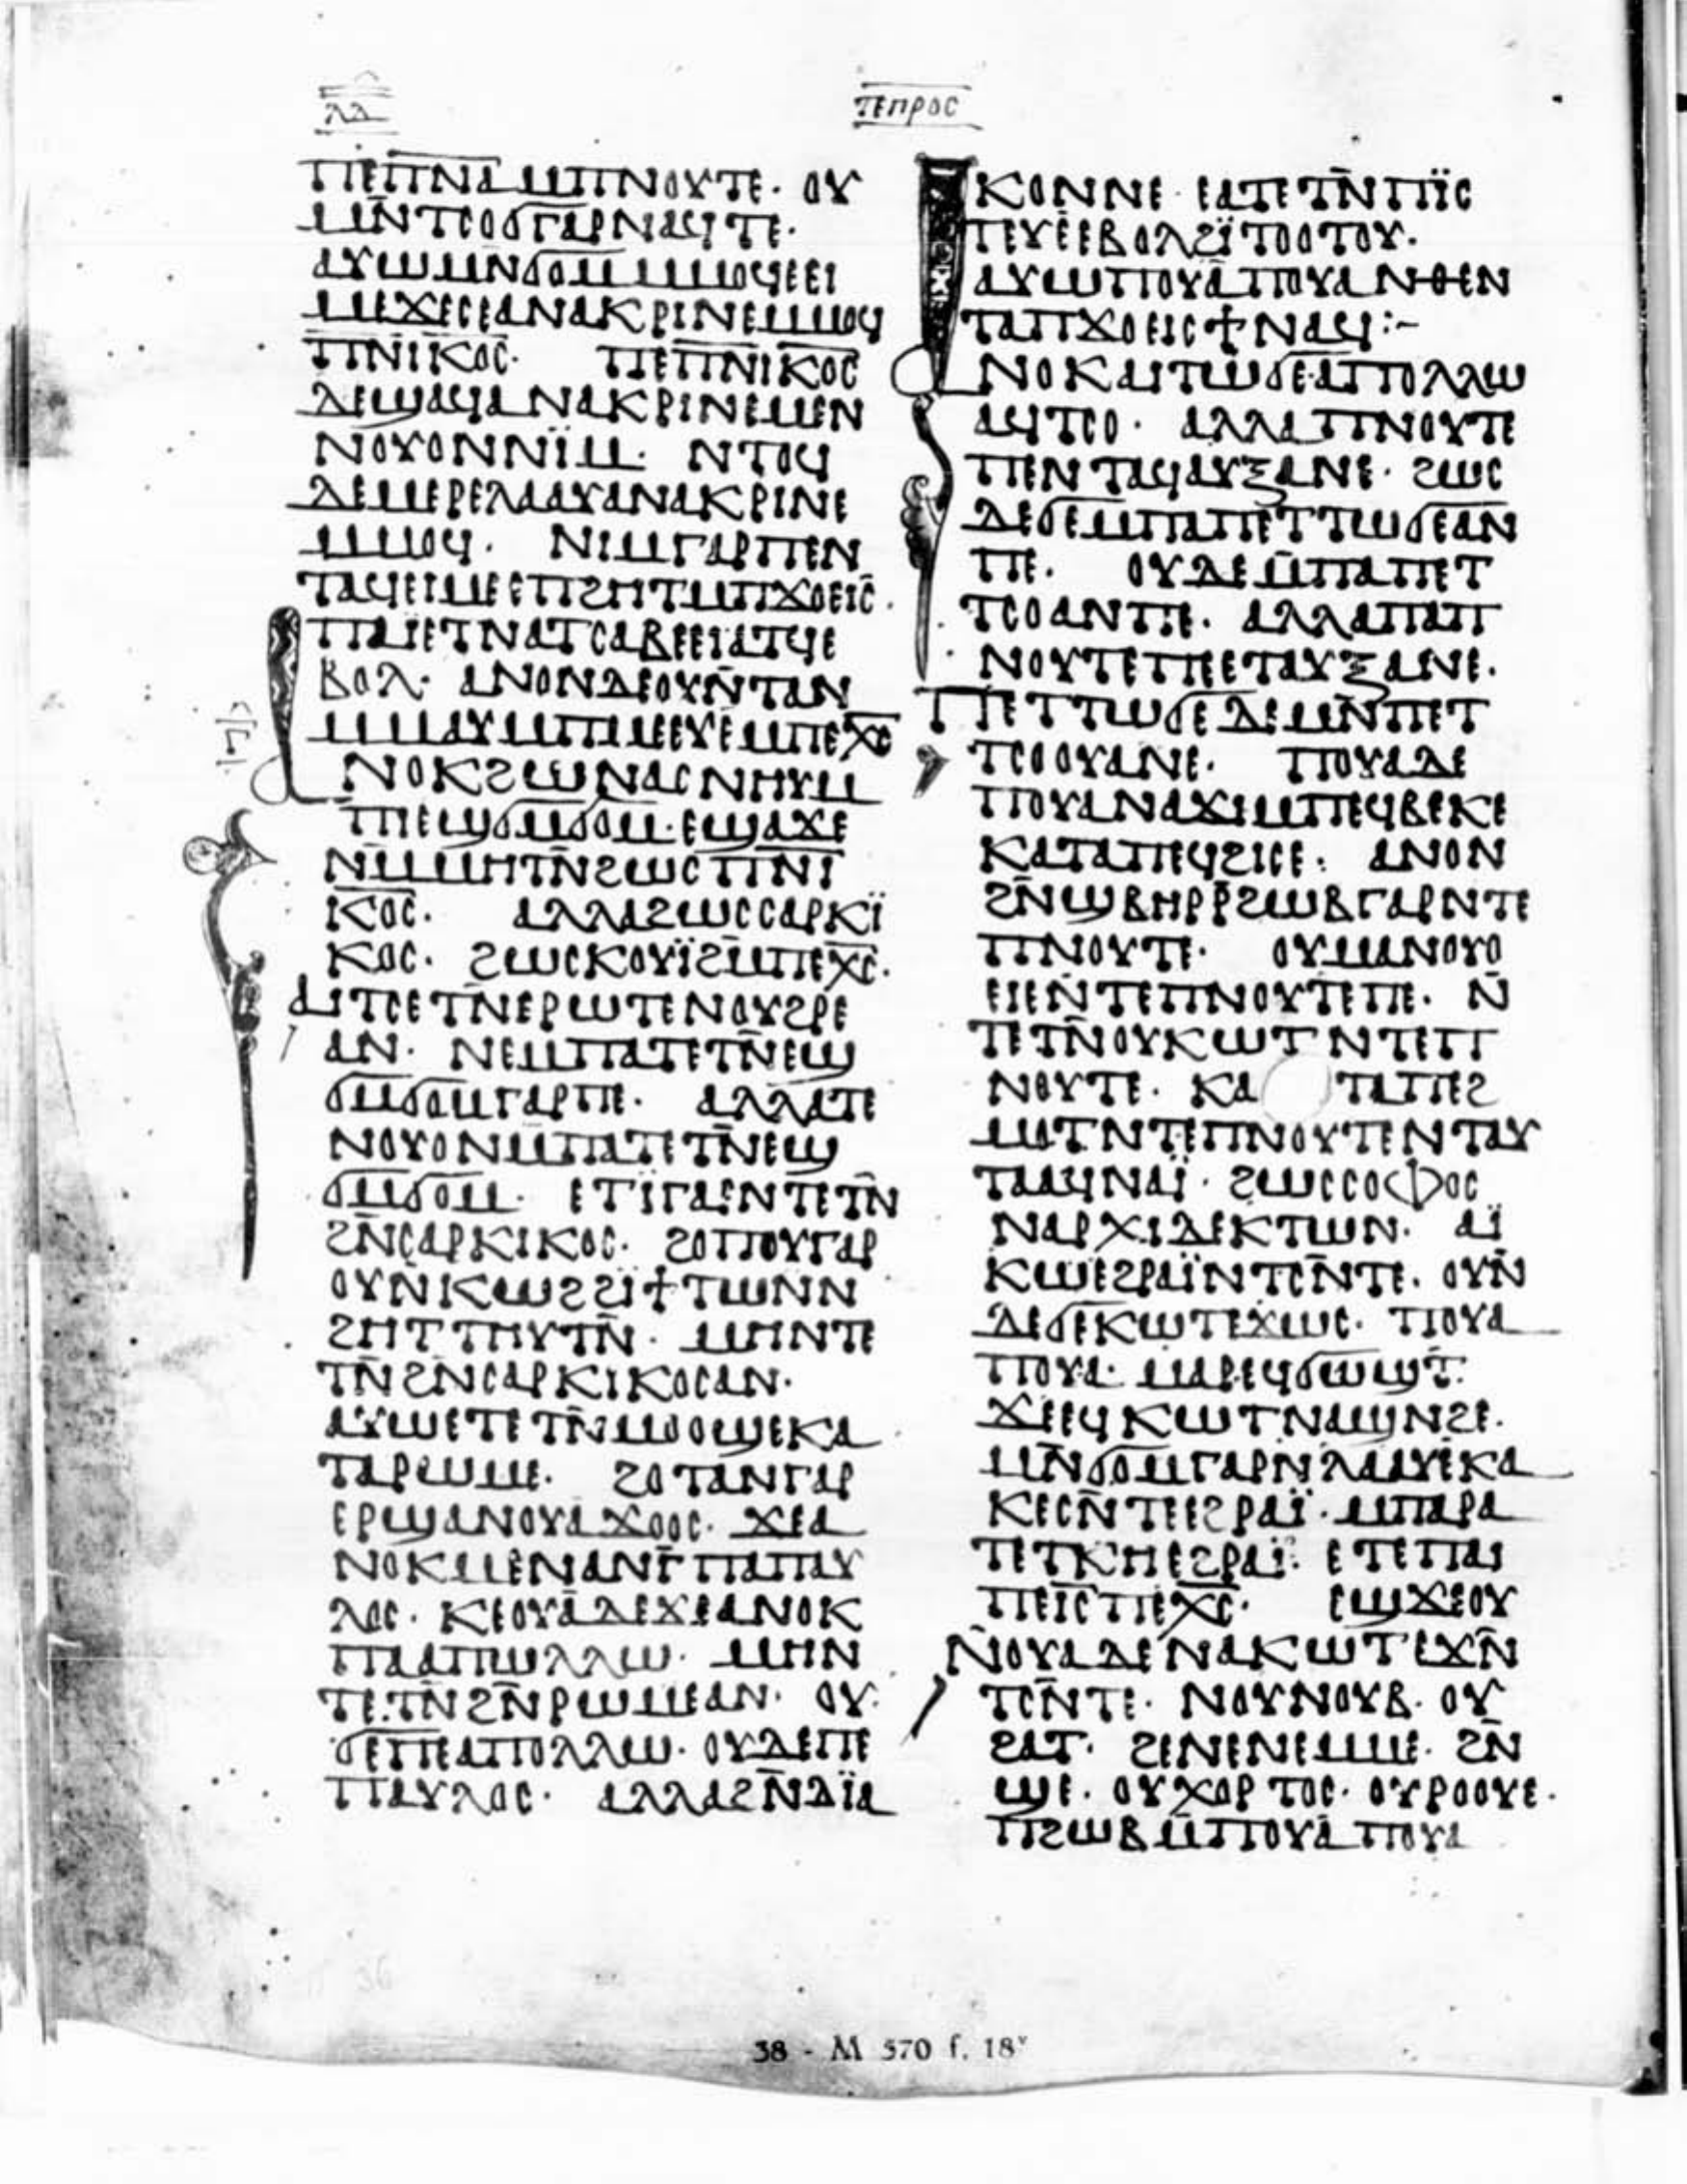 ⲗⲇ
ⲧⲉⲡⲣⲟⲥ
ⲡⲉⲡ̅ⲛ̅ⲁ̅ⲙⲡⲛⲟⲩⲧⲉ· ⲟⲩ
ⲙⲛ̅ⲧⲥⲟϭⲅⲁⲣⲛⲁϥⲧⲉ·
ⲁⲩⲱⲙⲛϭⲟⲙⲙⲙⲟϥⲉⲉⲓ
ⲙⲉϫⲉⲥⲉⲁⲛⲁⲕⲣⲓⲛⲉⲙⲙⲟϥ
ⲡ̅ⲛ̅ⲓ̅ⲕⲟⲥ· ⲡⲉⲡ̅ⲛ̅ⲓ̅ⲕⲟⲥ
ⲇⲉϣⲁϥⲁⲛⲁⲕⲣⲓⲛⲉⲙⲉⲛ
ⲛⲟⲩⲟⲛⲛⲓ̈ⲙ· ⲛⲧⲟϥ
ⲇⲉⲙⲉⲣⲉⲗⲁⲁⲩⲁⲛⲁⲕⲣⲓⲛⲉ
ⲙⲙⲟϥ· ⲛⲓⲙⲅⲁⲣⲡⲉⲛ
ⲧⲁϥⲉⲓⲙⲉⲉⲡϩⲏⲧⲙⲡϫⲟⲉⲓⲥ·
ⲡⲁⲓ̈ⲉⲧⲛⲁⲧⲥⲁⲃⲉⲉⲓⲁⲧϥⲉ
ⲃⲟⲗ· ⲁⲛⲟⲛⲇⲉⲟⲩⲛ̅ⲧⲁⲛ
ⲙⲙⲁⲩⲙⲡⲙⲉⲉⲩⲉⲙⲡⲉⲭ̅ⲥ̅
ⲛⲟⲕϩⲱⲛⲁⲥⲛⲏⲩⲙ
ⲡⲓⲉϣϭⲙϭⲟⲙ·ⲉϣⲁϫⲉ
ⲛⲙⲙⲏⲧⲛ̅ϩⲱⲥⲡ̅ⲛ̅ⲓ̅
ⲕⲟⲥ· ⲁⲗⲗⲁϩⲱⲥⲥⲁⲣⲕⲓ̈
ⲕⲟⲥ· ϩⲱⲥⲕⲟⲩⲓ̈ϩⲙⲡⲉⲭ̅ⲥ̅·
ⲁⲓⲧⲥⲉⲧⲛ̅ⲉⲣⲱⲧⲉⲛⲟⲩϩⲣⲉ
ⲁⲛ· ⲛⲉⲙⲡⲁⲧⲉⲧⲛ̅ⲉϣ
ϭⲙϭⲟⲙⲅⲁⲣⲡⲉ· ⲁⲗⲗⲁⲧⲉ
ⲛⲟⲩⲟⲛⲙ̅ⲡⲁⲧⲉⲧⲛ̅ⲉϣ
ϭⲙϭⲟⲙ· ⲉⲧⲓ̈ⲅⲁⲣⲛⲧⲉⲧⲛ̅
ϩⲛ̅ⲥⲁⲣⲕⲓⲕⲟⲥ· ϩⲟⲡⲟⲩⲅⲁⲣ
ⲟⲩⲛ̅ⲕⲱϩϩⲓϯⲧⲱⲛⲛ
ϩⲏⲧⲧⲏⲩⲧⲛ̅· ⲙⲏⲛⲧⲉ
ⲧⲛ̅ϩⲛ̅ⲥⲁⲣⲕⲓⲕⲟⲥⲁⲛ·
ⲁⲩⲱⲉⲧⲉⲧⲛ̅ⲙⲟⲟϣⲉⲕⲁ
ⲧⲁⲣⲱⲙⲉ· ϩⲟⲧⲁⲛⲅⲁⲣ
ⲉⲣϣⲁⲛⲟⲩⲁϫⲟⲟⲥ· ϫⲉⲁ
ⲛⲟⲕⲙⲉⲛⲁⲛⲅ̅ⲡⲁⲡⲁⲩ
ⲗⲟⲥ· ⲕⲉⲟⲩⲁⲇⲉϫⲉⲁⲛⲟⲕ
ⲡⲁⲁⲡⲱⲗⲗⲱ· ⲙⲏⲛ
ⲧⲉⲧⲛ̅ϩⲛ̅ⲣⲱⲙⲉⲁⲛ· ⲟⲩ
ϭⲉⲡⲉⲁⲡⲟⲗⲗⲱ· ⲟⲩⲇⲉⲡⲉ
ⲡⲁⲩⲗⲟⲥ· ⲁⲗⲗⲁϩⲛ̅ⲇⲓ̈ⲁ
ⲕⲟⲛⲛⲉ· ⲉⲁⲧⲉⲧⲛ̅ⲡⲓ̈ⲥ
ⲧⲉⲩⲉⲉⲃⲟⲗϩⲓ̈ⲧⲟⲟⲧⲟⲩ·
ⲁⲩⲱⲡⲟⲩⲁⲡⲟⲩⲁⲛⲑⲉⲛ
ⲧⲁⲡϫⲟⲉⲓⲥϯⲛⲁϥ:–
ⲛⲟⲕⲁⲓⲧⲱϭⲉⲁⲡⲟⲗⲗⲱ
ⲁϥⲧⲥⲟ· ⲁⲗⲗⲁⲡⲛⲟⲩⲧⲉ
ⲡⲉⲛⲧⲁϥⲁⲩⲝⲁⲛⲉ· ϩⲱⲥ
ⲇⲉϭⲉⲙⲡⲁⲡⲉⲧⲧⲱϭⲉⲁⲛ
ⲡⲉ· ⲟⲩⲇⲉⲙ̅ⲡⲁⲡⲉⲧ
ⲧⲥⲟⲁⲛⲡⲉ· ⲁⲗⲗⲁⲡⲁⲡ
ⲛⲟⲩⲧⲉⲡⲉⲧⲁⲩⲝⲁⲛⲉ·
ⲡⲉⲧⲧⲱϭⲉⲇⲉⲙⲛ̅ⲡⲉⲧ
ⲧⲥⲟⲟⲩⲁⲛⲉ· ⲡⲟⲩⲁⲇⲉ
ⲡⲟⲩⲁⲛⲁϫⲓⲙⲡⲉϥⲃⲉⲕⲉ
ⲕⲁⲧⲁⲡⲉϥϩⲓⲥⲉ: ⲁⲛⲟⲛ
ϩⲛ̅ϣⲃⲏⲣⲣ̅ϩⲱⲃⲅⲁⲣⲛⲧⲉ
ⲡⲛⲟⲩⲧⲉ· ⲟⲩⲙⲁⲛⲟⲩⲟ
ⲉⲓⲉⲛ̅ⲧⲉⲡⲛⲟⲩⲧⲉⲡⲉ· ⲛ̅
ⲧⲉⲧⲛ̅ⲟⲩⲕⲱⲧⲛⲧⲉⲡ
ⲛⲟⲩⲧⲉ· ⲕⲁ ⲧⲁⲡⲉϩ
ⲙⲟⲧⲛⲧⲉⲡⲛⲟⲩⲧⲉⲛⲧⲁⲩ
ⲧⲁⲁϥⲛⲁⲓ̈· ϩⲱⲥⲥⲟⲫⲟⲥ
ⲛⲁⲣⲭⲓⲇⲉⲕⲧⲱⲛ· ⲁⲓ̈
ⲕⲱⲉϩⲣⲁⲓ̈ⲛⲧⲥⲛ̅ⲧⲉ· ⲟⲩⲛ̅
ⲇⲉϭⲉⲕⲱⲧⲉϫⲱⲥ· ⲡⲟⲩⲁ
ⲡⲟⲩⲁ· ⲙⲁⲣⲉϥϭⲱϣⲧ·
ϫⲉⲉϥⲕⲱⲧⲛⲁϣⲛϩⲉ·
ⲙⲛ̅ϭⲟⲙⲅⲁⲣⲛⲗⲁⲁⲩⲉⲕⲁ
ⲕⲉⲥⲛ̅ⲧⲉⲉϩⲣⲁⲓ̈· ⲙⲡⲁⲣⲁ
ⲧⲉⲧⲕⲏⲉϩⲣⲁⲓ̈· ⲉⲧⲉⲡⲁⲓ
ⲡⲉⲓ̅ⲥ̅ⲡⲉⲭ̅ⲥ̅· ⲉϣϫⲉⲟⲩ
ⲛ̅ⲟⲩⲁⲇⲉⲛⲁⲕⲱⲧⲉϫⲛ̅
ⲧⲥⲛ̅ⲧⲉ· ⲛⲟⲩⲛⲟⲩⲃ· ⲟⲩ
ϩⲁⲧ· ϩⲉⲛⲉⲛⲉⲙⲙⲉ· ϩⲛ̅
ϣⲉ· ⲟⲩⲭⲟⲣⲧⲟⲥ· ⲟⲩⲣⲟⲟⲩⲉ·
ⲡϩⲱⲃⲙ̅ⲡⲟⲩⲁⲡⲟⲩⲁ
38 - M 570 f. 18ᵛ